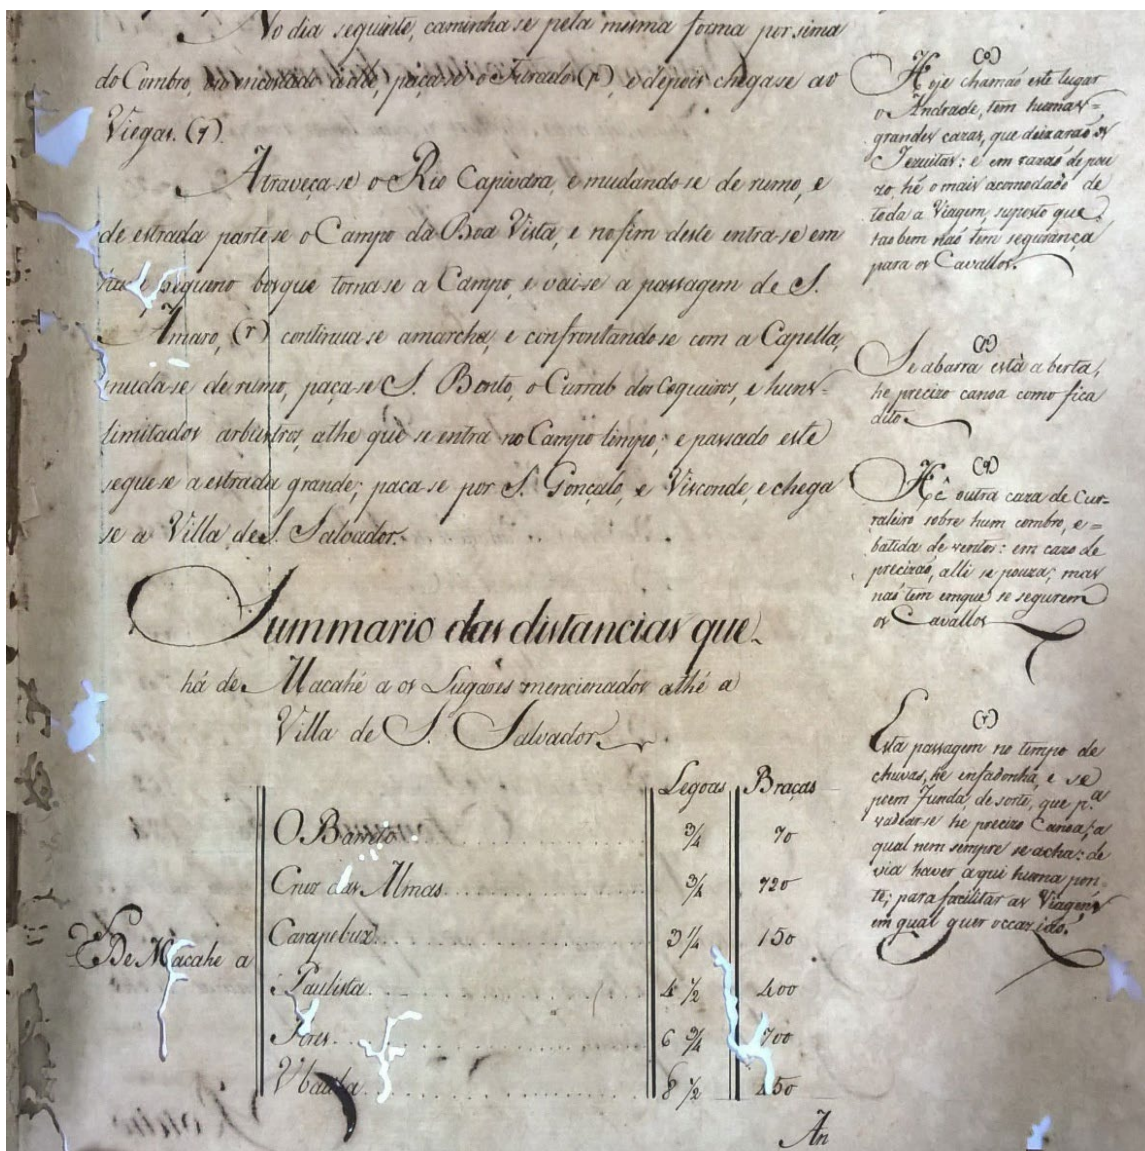 No dia seguinte, caminha se pela mesma forma por sima
do Combro, ou encostado a elle, paça-se o Furado (p), e depois chega se ao
Viegas. (q)
Atraveça-se o Rio Capivára, e mudando-se de rumo, e
de estrada parte-se o Campo da Boa Vista, e no fim deste entra-se em
pequeno bosque torna se a Campo, e vai-se a passagem de S.
Amaro, (r) continua-se a marcha, e confrontando-se com a Capella,
muda-se de rumo, paça-se S. Bento, o Curral dos Coqueiros, e huns
limitados arbustros, athe que se entra no Campo limpo; e passado este
segue-se a estrada grande; paca-se por S. Gonçalo, e Visconde, e chega
se a Villa de S. Salvador.
Summario das distancias que
há de Macahé a os Lugares mencionados athé a
Villa de S. Salvador.
Legoas Braças
De Macahe a
O Barreto ¾ 70
Cruz das Almas ¾ 720
Carapebux 3 ¼ 150
Paulista 4 ½ 400
Jores 6 ¾ 700
Ubatila 8 ½ 450
An
(o)
Hoje chamão este lugar
o Andrade, tem humas
grandes cazas, que deixarão os
Jezuitas: e em razão de pou
zo hé o mais acomodado de
toda a Viagem, suposto que
taobem não tem segurança
para os Cavallos.
(p)
Se abarra está a berta,
he precizo canoa como fica
dito.
(q)
Hê outra caza de Cur-
raleiro sobre hum combro, e =
batida de ventos: em cazo de
precizão, alli se pouza; mas
não tem emque se segurem
os Cavallos
(r)
Esta passagem no tempo de
chuvas, he enfadonha, e se
poem funda, de sorte, que p.ª
vadear-se he precizo Canoa, a
qual nem sempre se acha: de
via haver aqui huma pon-
te; para facilitar as Viagens
em qual quer occazião.